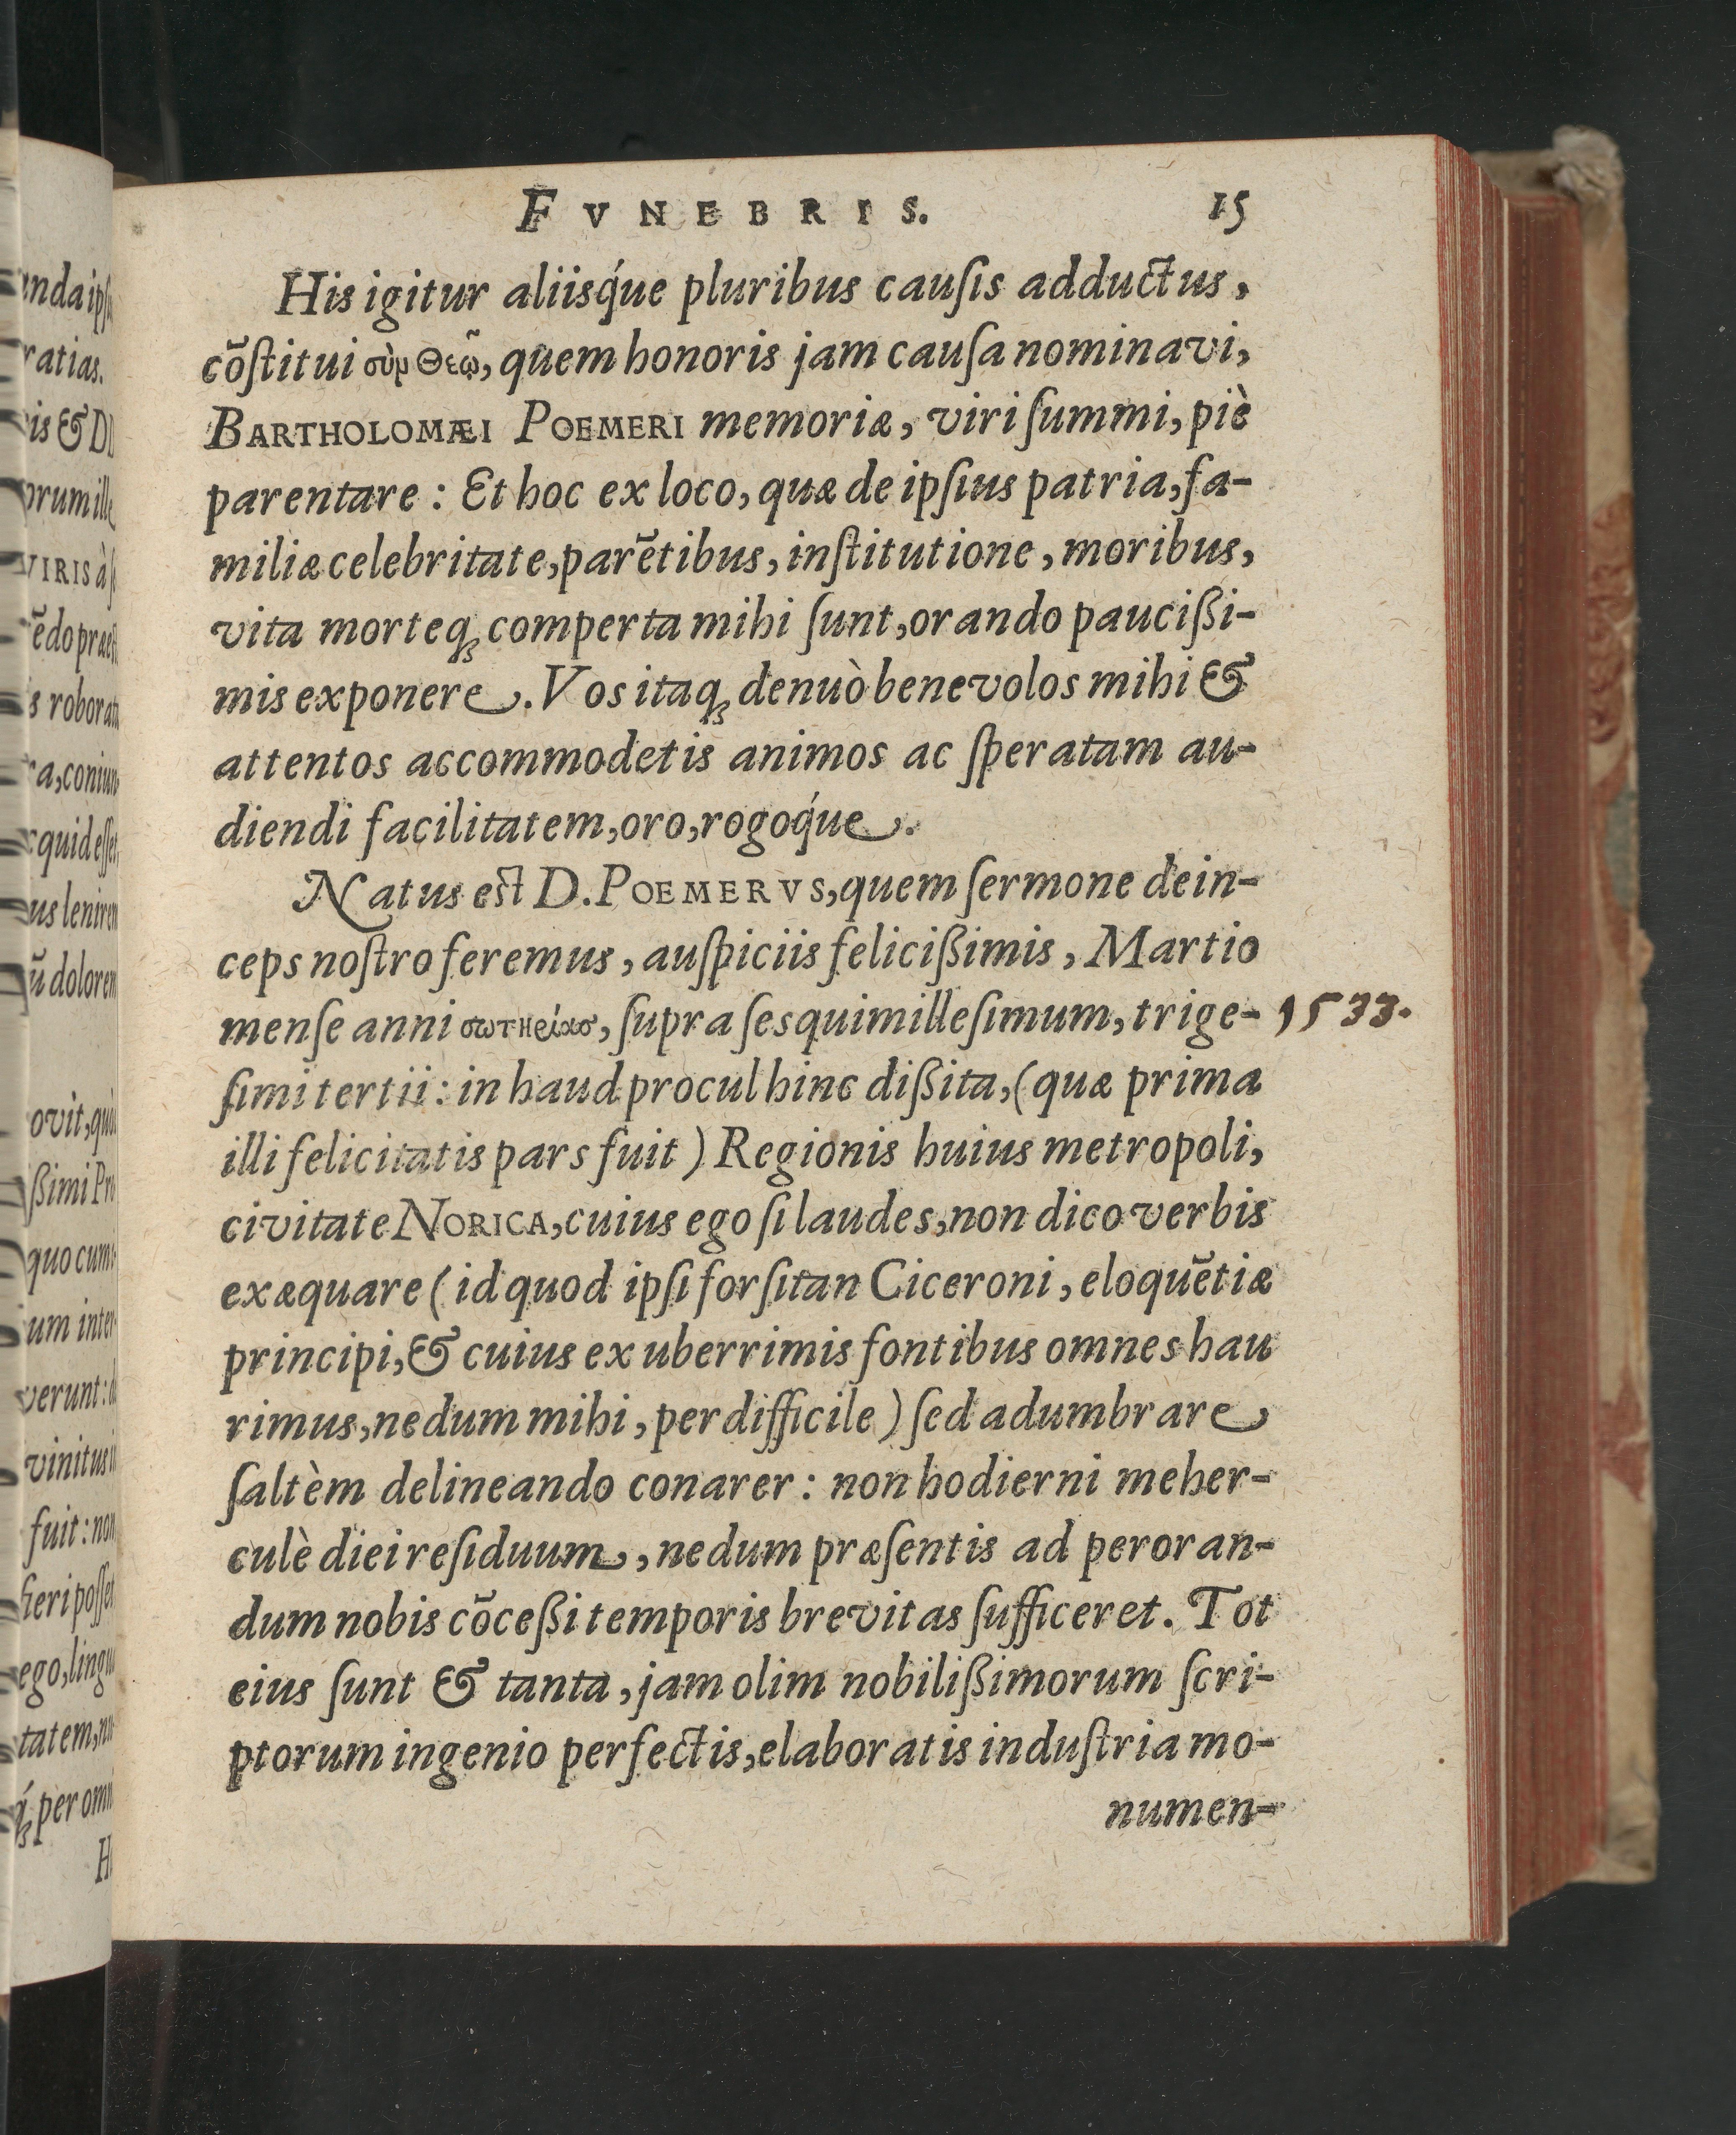 FVNEBRIS. 15
His igitur aliisq́ue pluribus cauſis adductus,
cõſtitui σὺν Θεῷ, quem honoris jam cauſa nominavi,
BARTHOLOMÆI POEMERI memoriæ, viri ſummi, piè
parentare: Et hoc ex loco, quæ de ipſius patria, fa-
miliæ celebritate, parẽtibus, inſtitutione, moribus,
vita morteq́ꝫ comperta mihi ſunt, orando pauciſſi-
mis exponere. Vos itaqꝫ denuò benevolos mihi &
attentos accommodetis animos ac ſperatam au-
diendi facilitatem, oro, rogoq́ue.
Natus eſt D. POEMERVS, quem ſermone dein-
ceps noſtro feremus, auſpiciis feliciſſimis, Martio
menſe anni σωτηρίας, ſupra ſesquimilleſimum, trige- 1533.
ſimi tertii: in haud procul hinc diſſita, (quæ prima
illi felicitatis pars fuit) Regionis huius metropoli,
civitate NORICA, cuius ego ſi laudes, non dico verbis
exæquare (id quod ipſi forſitan Ciceroni, eloquẽtiæ
principi, & cuius ex uberrimis fontibus omnes hau
rimus, nedum mihi, perdifficile) ſed adumbrare
ſaltèm delineando conarer: non hodierni meher-
culè diei reſiduum, nedum præſentis ad peroran-
dum nobis cõceſſi temporis brevitas ſufficeret. Tot
eius ſunt & tanta, jam olim nobiliſſimorum ſcri-
ptorum ingenio perfectis, elaboratis induſtria mo-
numen-